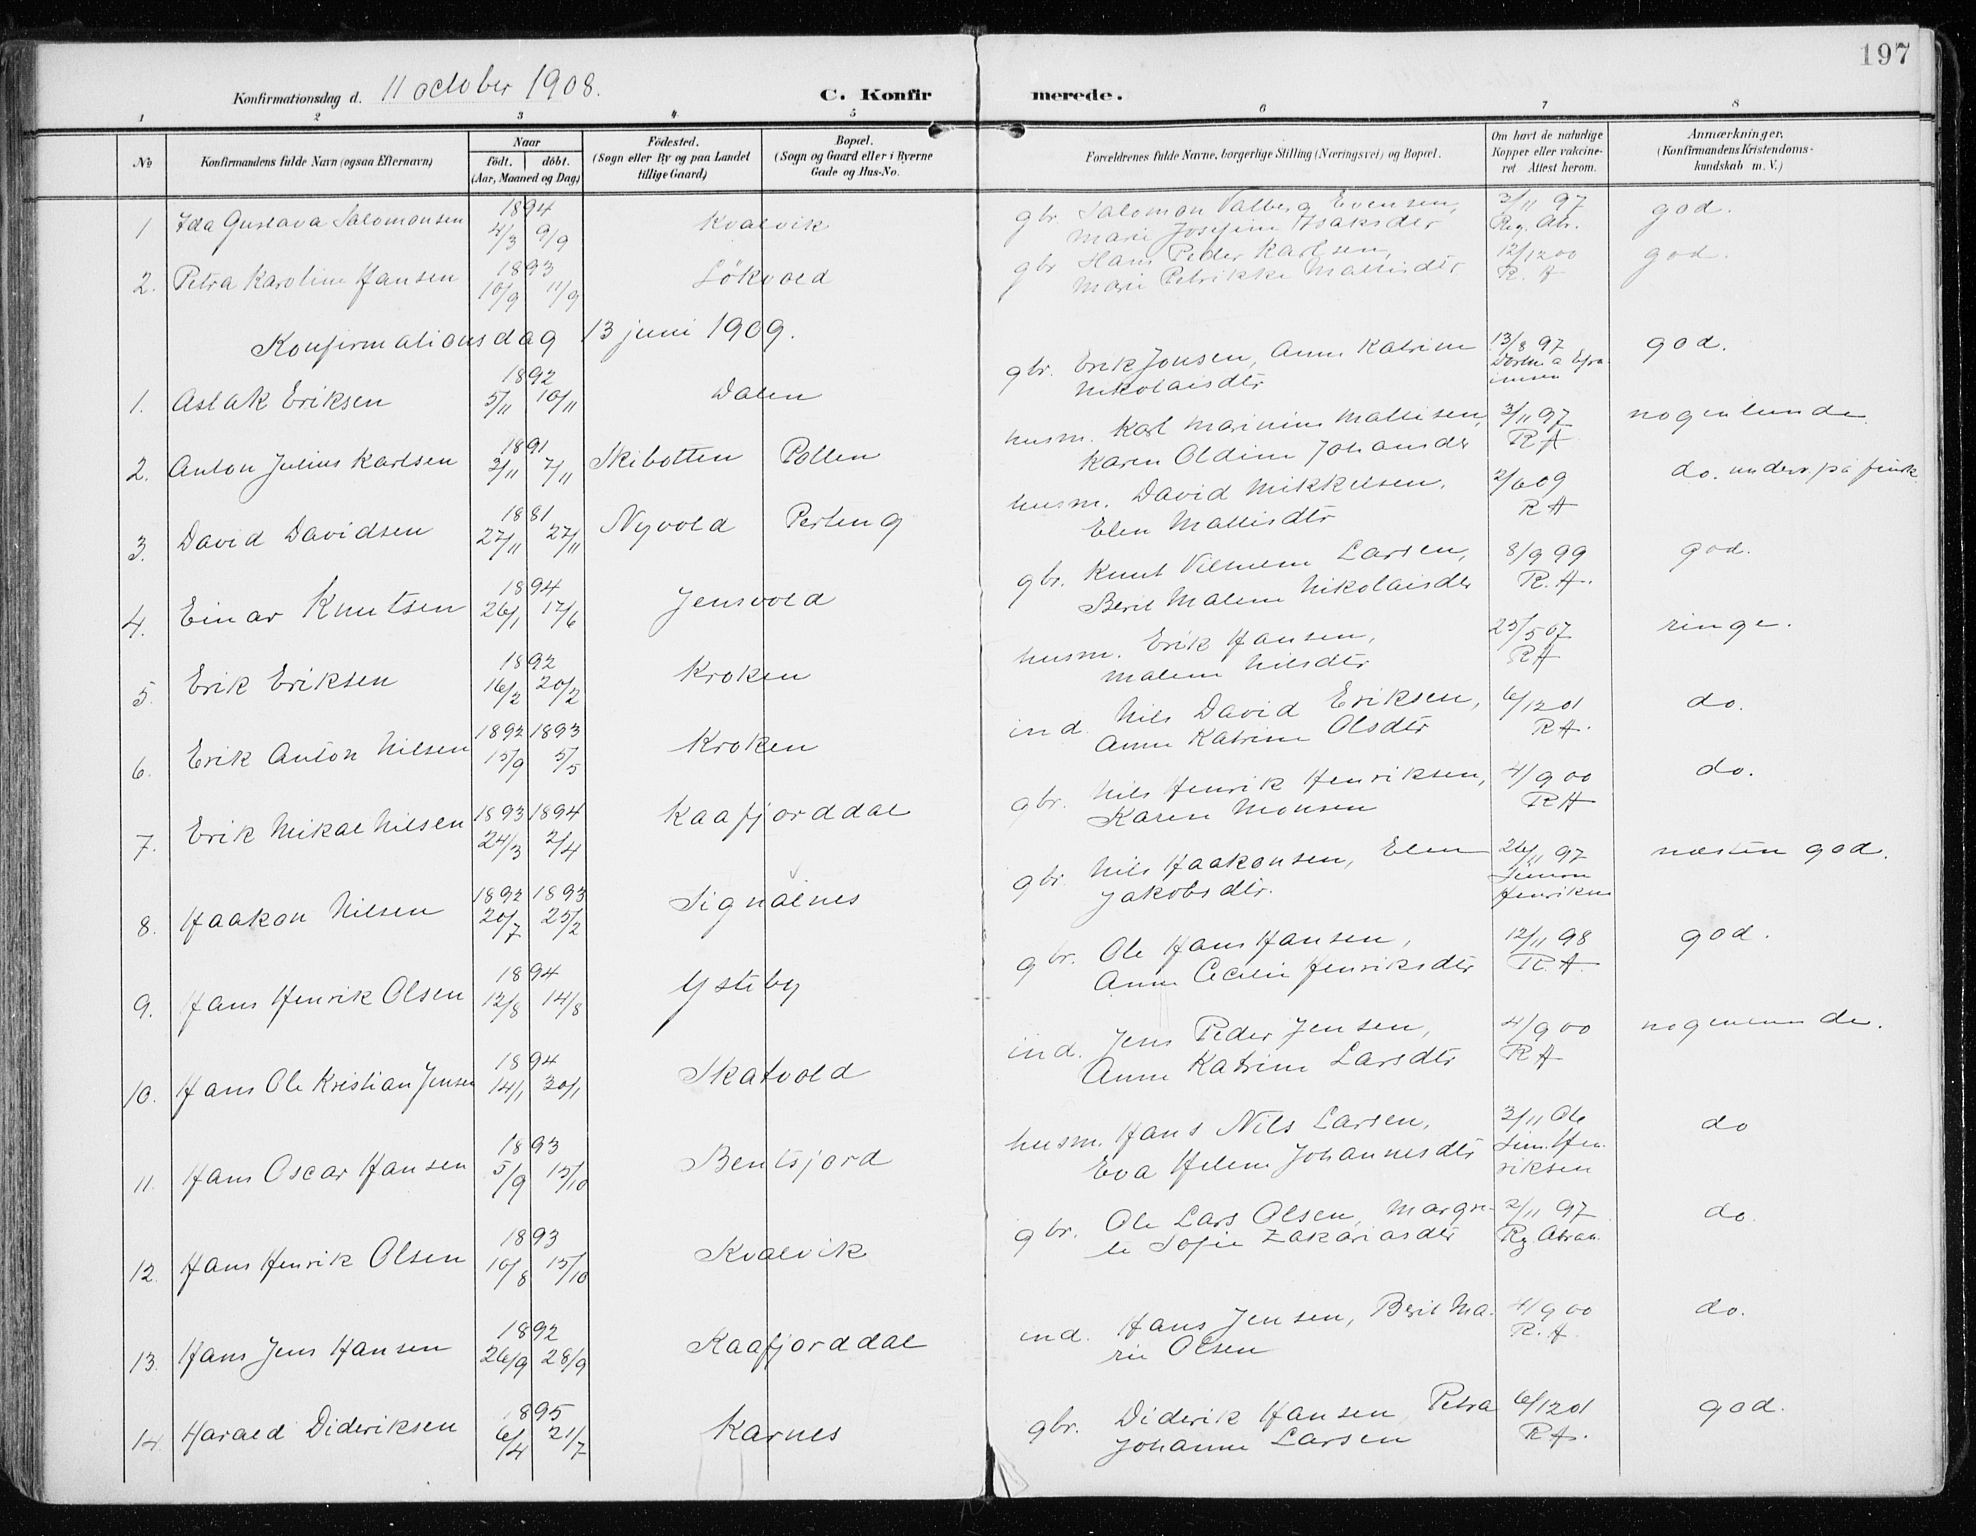 197
Konfirmationsdag d. 11 october 1908.
C. Konfirmerede.
1 2 3 4 5 6 7 8
No
Konfirmandens fulde Navn (ogsaa Efternavn)
Naar
födt. döbt.
(Aar, Maaned og Dag)
Födested.
(Sogn eller By og paa Landet
tillige Gaard)
Bopæl.
(Sogn og Gaard eller i Byerne
Gade og Hus-No.
Forældrenes fulde Navne, borgerlige Stilling (Næringsvei) og Bopæl.
Om havt de naturlige
Kopper eller vakcine-
ret Attest herom.
Anmærkninger.
(Konfirmandens Kristendoms-
kundskab m. V.)
1 Ida Gustava Salomonsen 1894 4/3 9/9 Kvalvik gbr. Salomon Valberg Evensen, 3/11 97 god.
Marie Josefine Isaksdtr Reg. Abr.
2. Petra Karoline Hansen 1893 10/9 11/9 Lökvold gbr Hans Peder Karlsen, 12/12 00 god.
Marie Petrikke Mathisdtr R. A
Konfirmationsdag 13 juni 1909.
1. Aslak Eriksen 1892 5/11 10/11 Dalen gbr. Erik Jonsen, Anne Katrine 13/8 97 god.
Nikolaisdtr
2. Anton Julius Karlsen 1891 3/11 7/11 Skibotten Pollen husm. Karl Marinius Mathisen, 3/11 97 nogenlunde
Karen Oldine Johansdtr RA
3. David Davidsen 1881 27/11 27/11 Nyvold Perteng husm. David Mikkelsen, 2/6 09 do. underv. på finsk
Elen Mathisdtr RA
4. Einar Knutsen 1894 26/1 17/6 Jensvold gbr. Knut Vilhelm Larsen, 8/9 99 god.
Berit Malene Nikolaisdtr R.A.
5 Erik Eriksen 1892 16/2 20/2 Kroken husm. Erik Hansen, 25/5 07 ringe.
Malene Nilsdtr RA
6. Erik Anton Nilsen 1892 1893 15/9 5/5 Kroken ind. Nils David Eriksen, 6/12 01 do.
Anne Katrine Olsdtr RA.
7. Erik Mikal Nilsen 1893 1894 24/3 2/4 Kaafjorddal gbr. Nils Henrik Henriksen, 4/9 00 do.
Karen Monsen RA
8. Haakon Nilsen 1892 1893 20/7 25/2 Signalnes gbr. Nils Haakonsen, Elen 26/11 97 næsten god.
Jakobsdtr. Simon
Henriksen
9. Hans Henrik Olsen 1894 12/8 14/8 Ysteby gbr. Ole Hans Hansen, 12/11 98 god.
Anne Cecilie Henriksdtr R.A.
10. Hans Ole Kristian Jensen 1894 14/1 30/1 Skatvold ind. Jens Peder Jensen, 4/9 00 nogenlunde.
Anne Katrine Larsdtr RA
11. Hans Oscar Hansen 1893 5/9 15/10 Bentsjord husm. Hans Nils Larsen, 3/11 do
Eva Helene Johannesdtr Sim. Hen-
riksen
12. Hans Henrik Olsen 1893 10/8 15/10 Kvalvik gbr. Ole Lars Olsen, Margre- 2/11 97 do.
te Sofie Zakariasdtr Rg Abrah.
13. Hans Jens Hansen 1892 26/9 28/9 Kaafjorddal ind. Hans Jensen, Berit Ma- 4/9 00 do.
rie Olsen R.A.
14. Harald Dideriksen 1895 6/4 21/7 Karnes gbr. Diderik Hansen, Petra 6/12 01 god.
Johanne Larsen RA.